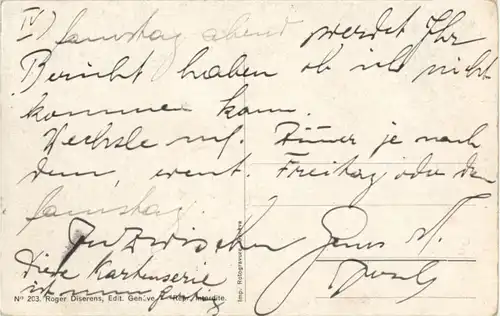 IV)
Samstag abend werdet Ihr
Bericht haben ob ich nicht
kommen kann.
Wechsle evtl. Zimmer je nach
dem, event. Freitag oder den
Samstag.
Inzwischen Gruss
Diese Kartenserie
ist nun fertig
Nº 203. Roger Diserens, Edit. Genève. Repr. Interdite.
Imp. Rotogravure